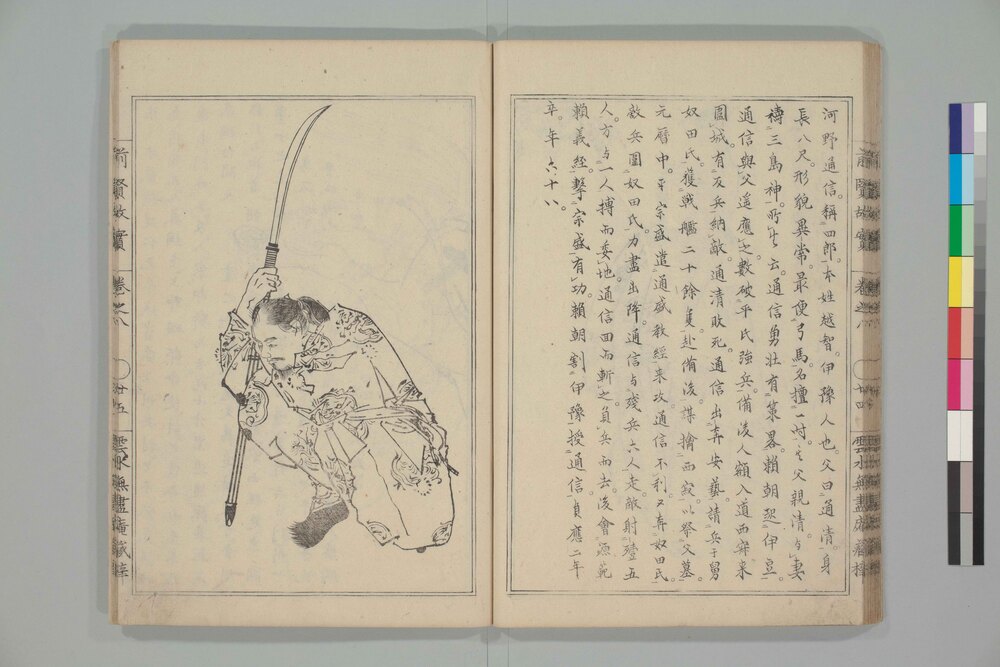 河野通信。稱四郎。本姓越智。伊豫人也。父曰通清。身
長八尺。形貌異常。最便弓馬。名擅一時。其父親清。与妻
禱三島神。所生云。通信勇壯有策畧。賴朝起伊豆。
通信與父遥應之。數破平氏強兵。備後人額入道西寂来
圍城。有反兵納敵。通清敗死。通信出奔安藝。請兵于舅
奴田氏。獲戦艦二十餘隻。赴備後。謀擒西寂。以祭父墓。
元暦中。平宗盛遣通盛教經来攻。通信不利。又奔奴田氏。
敵兵圍奴田氏。力盡出降。通信与殘兵六人走。敵射殪五
人。方与一人搏而委地。通信回而斬之。負兵而去。後會源範
賴義經。擊宗盛有功。賴朝割伊豫授通信。貞應二年
卒。年六十八。
前賢故實
卷之八
廿五
雲水無盡庵藏梓